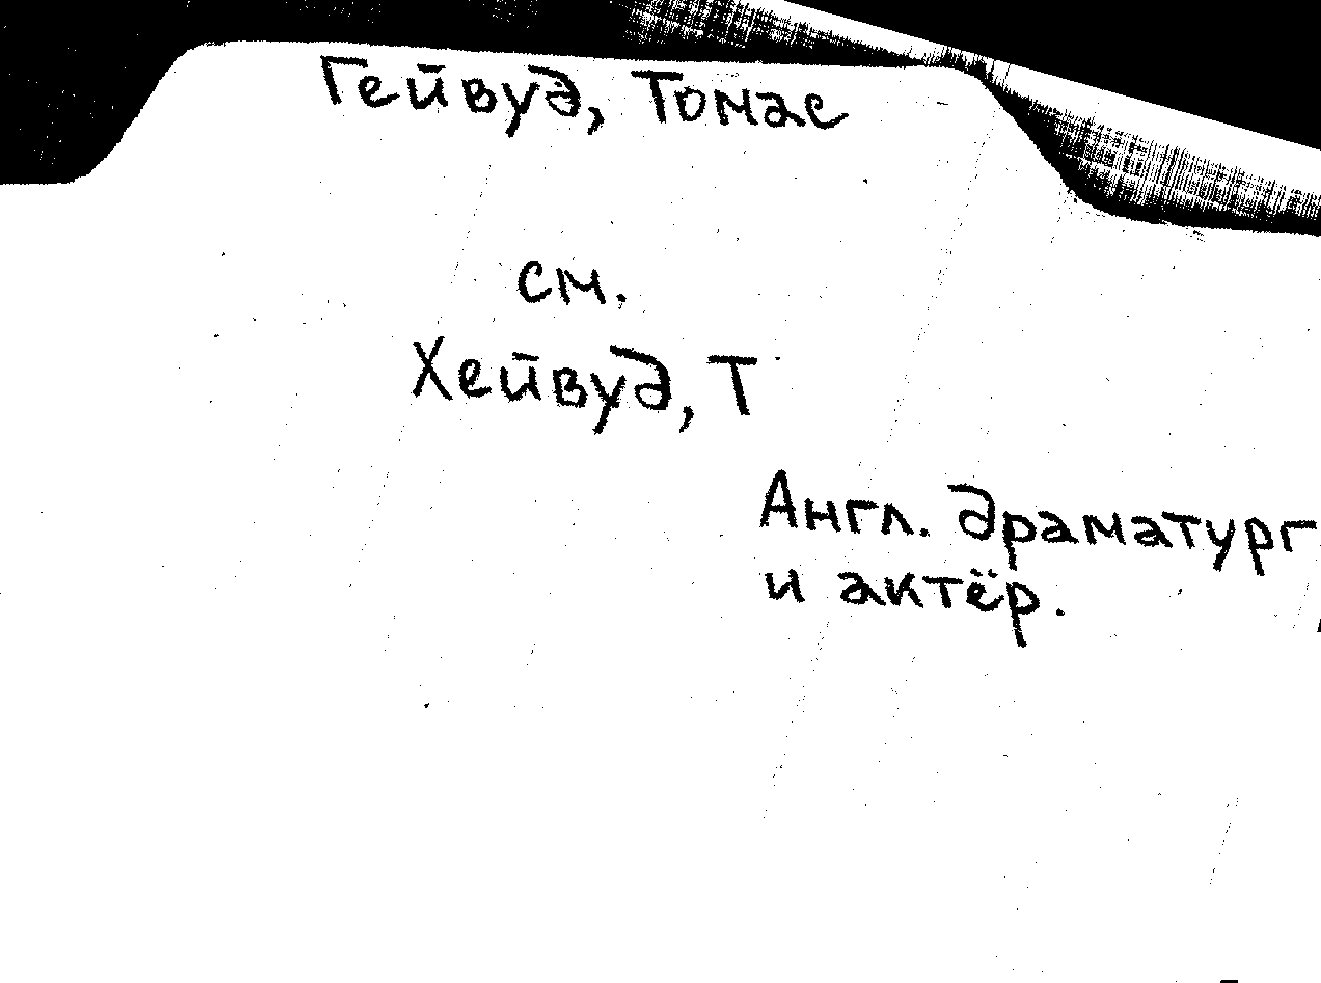 Гейвуд, Томас
см.
Хейвуд, Т
Англ. драматург
и актёр.